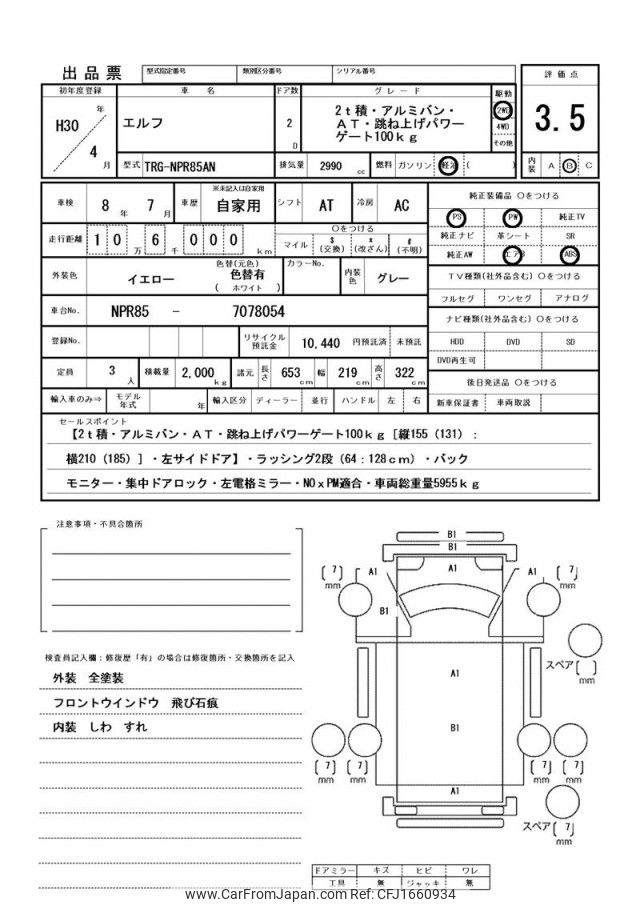 出品票 型式指定番号 類別区分番号 シリアル番号
初年度登録 車 名 ドア数 グ レ ー ド 駆動 評 価 点
H30 年 4 月 エルフ 2 D
2t積・アルミバン・
AT・跳ね上げパワー
ゲート100kg
2WD
4WD
その他
3.5
型式 TRG-NPR85AN 排気量 2990 cc 燃料 ガソリン 軽油 ( ) 内装 A B C
車検 8 年 7 月 車歴 ※未記入は自家用 自家用 シフト AT 冷房 AC 純正装備品 〇をつける
走行距離 1 0 万 6 千 0 0 0 km 〇をつける
マイル $(交換) *(改ざん) #(不明)
PS PW 純正TV
純正ナビ 革シート SR
純正AW エアB ABS
外装色 イエロー 色替(元色) 色替有 ( ホワイト ) カラーNo. 内装色 グレー
TV種類(社外品含む) 〇をつける
フルセグ ワンセグ アナログ
車台No. NPR85 - 7078054
ナビ種類(社外品含む) 〇をつける
登録No. リサイクル預託金 10,440 円預託済 未預託
HDD DVD SD
DVD再生可
定員 3 人 積載量 2,000 kg 諸元 長さ 653 cm 幅 219 cm 高さ 322 cm
後日発送品 〇をつける
輸入車のみ⇒ モデル年式 年 輸入区分 ディーラー 並行 ハンドル 左 右 新車保証書 車両取説
セールスポイント
【2t積・アルミバン・AT・跳ね上げパワーゲート100kg［縦155（131）:
横210（185）］・左サイドドア】・ラッシング2段（64：128cm）・バック
モニター・集中ドアロック・左電格ミラー・NOxPM適合・車両総重量5955kg
注意事項・不具合箇所
検査員記入欄：修復歴「有」の場合は修復箇所・交換箇所を記入
外装 全塗装
フロントウインドウ 飛び石痕
内装 しわ すれ
B1
B1
[ 7 ] mm A1 A1 A1 [ 7 ] mm
B1
スペア [ ] mm
A1
B1
[ 7 ] mm [ 7 ] mm [ 7 ] mm [ 7 ] mm
A1
スペア [ 7 ] mm
ドアミラー キズ ヒビ ワレ
工具 無 ジャッキ 無
www.CarFromJapan.com Ref: CFJ1660934